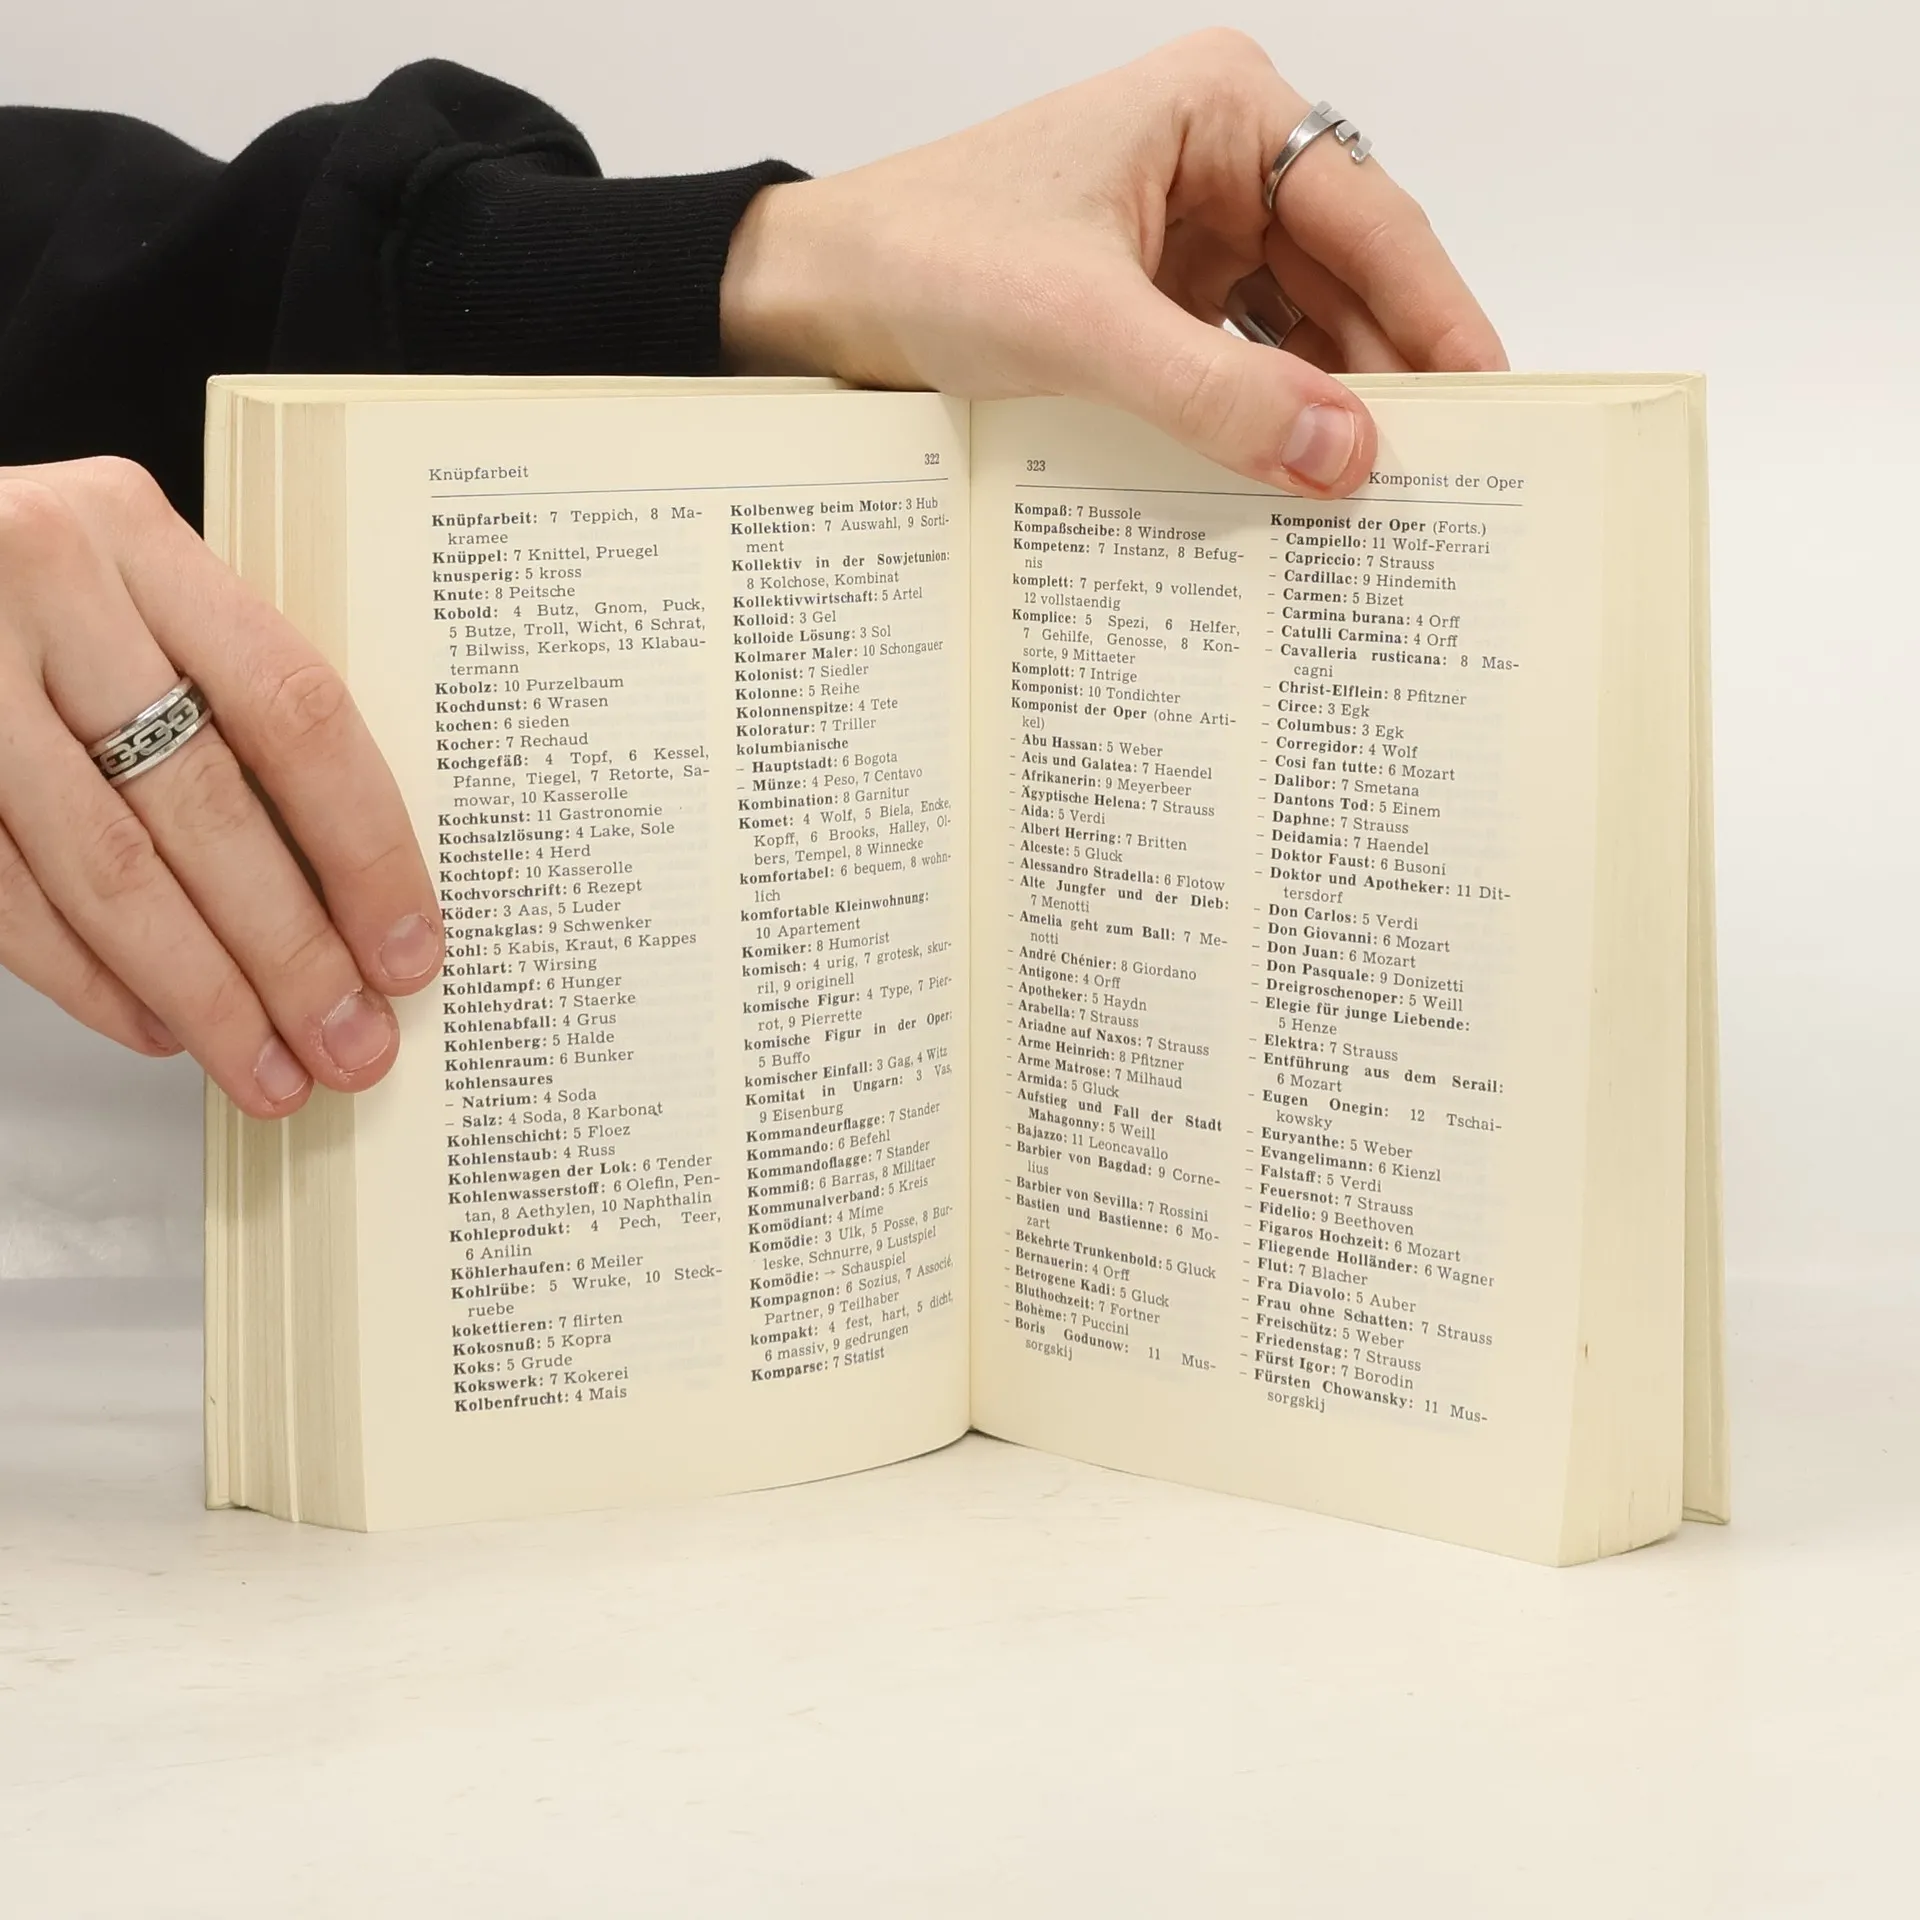 Knüpfarbeit
322
Knüpfarbeit: 7 Teppich, 8 Ma-
kramee
Knüppel: 7 Knittel, Pruegel
knusperig: 5 kross
Knute: 8 Peitsche
Kobold: 4 Butz, Gnom, Puck,
5 Butze, Troll, Wicht, 6 Schrat,
7 Bilwiss, Kerkops, 13 Klabau-
termann
Kobolz: 10 Purzelbaum
Kochdunst: 6 Wrasen
kochen: 6 sieden
Kocher: 7 Rechaud
Kochgefäß: 4 Topf, 6 Kessel,
Pfanne, Tiegel, 7 Retorte, Sa-
mowar, 10 Kasserolle
Kochkunst: 11 Gastronomie
Kochsalzlösung: 4 Lake, Sole
Kochstelle: 4 Herd
Kochtopf: 10 Kasserolle
Kochvorschrift: 6 Rezept
Köder: 3 Aas, 5 Luder
Kognakglas: 9 Schwenker
Kohl: 5 Kabis, Kraut, 6 Kappes
Kohlart: 7 Wirsing
Kohldampf: 6 Hunger
Kohlehydrat: 7 Staerke
Kohlenabfall: 4 Grus
Kohlenberg: 5 Halde
Kohlenraum: 6 Bunker
kohlensaures
– Natrium: 4 Soda
– Salz: 4 Soda, 8 Karbonat
Kohlenschicht: 5 Floez
Kohlenstaub: 4 Russ
Kohlenwagen der Lok: 6 Tender
Kohlenwasserstoff: 6 Olefin, Pen-
tan, 8 Aethylen, 10 Naphthalin
Kohleprodukt: 4 Pech, Teer,
6 Anilin
Köhlerhaufen: 6 Meiler
Kohlrübe: 5 Wruke, 10 Steck-
ruebe
kokettieren: 7 flirten
Kokosnuß: 5 Kopra
Koks: 5 Grude
Kokswerk: 7 Kokerei
Kolbenfrucht: 4 Mais
Kolbenweg beim Motor: 3 Hub
Kollektion: 7 Auswahl, 9 Sorti-
ment
Kollektiv in der Sowjetunion:
8 Kolchose, Kombinat
Kollektivwirtschaft: 5 Artel
Kolloid: 3 Gel
kolloide Lösung: 3 Sol
Kolmarer Maler: 10 Schongauer
Kolonist: 7 Siedler
Kolonne: 5 Reihe
Kolonnenspitze: 4 Tete
Koloratur: 7 Triller
kolumbianische
– Hauptstadt: 6 Bogota
– Münze: 4 Peso, 7 Centavo
Kombination: 8 Garnitur
Komet: 4 Wolf, 5 Biela, Encke,
Kopff, 6 Brooks, Halley, Ol-
bers, Tempel, 8 Winnecke
komfortabel: 6 bequem, 8 wohn-
lich
komfortable Kleinwohnung:
10 Apartement
Komiker: 8 Humorist
komisch: 4 urig, 7 grotesk, skur-
ril, 9 originell
komische Figur: 4 Type, 7 Pier-
rot, 9 Pierrette
komische Figur in der Oper:
5 Buffo
komischer Einfall: 3 Gag, 4 Witz
Komitat in Ungarn: 3 Vas,
9 Eisenburg
Kommandeurflagge: 7 Stander
Kommando: 6 Befehl
Kommandoflagge: 7 Stander
Kommiß: 6 Barras, 8 Militaer
Kommunalverband: 5 Kreis
Komödiant: 4 Mime
Komödie: 3 Ulk, 5 Posse, 8 Bur-
leske, Schnurre, 9 Lustspiel
Komödie: → Schauspiel
Kompagnon: 6 Sozius, 7 Associé,
Partner, 9 Teilhaber
kompakt: 4 fest, hart, 5 dicht,
6 massiv, 9 gedrungen
Komparse: 7 Statist
323
Komponist der Oper
Kompaß: 7 Bussole
Kompaßscheibe: 8 Windrose
Kompetenz: 7 Instanz, 8 Befug-
nis
komplett: 7 perfekt, 9 vollendet,
12 vollstaendig
Komplice: 5 Spezi, 6 Helfer,
7 Gehilfe, Genosse, 8 Kon-
sorte, 9 Mittaeter
Komplott: 7 Intrige
Komponist: 10 Tondichter
Komponist der Oper (ohne Arti-
kel)
– Abu Hassan: 5 Weber
– Acis und Galatea: 7 Haendel
– Afrikanerin: 9 Meyerbeer
– Ägyptische Helena: 7 Strauss
– Aida: 5 Verdi
– Albert Herring: 7 Britten
– Alceste: 5 Gluck
– Alessandro Stradella: 6 Flotow
– Alte Jungfer und der Dieb:
7 Menotti
– Amelia geht zum Ball: 7 Me-
notti
– André Chénier: 8 Giordano
– Antigone: 4 Orff
– Apotheker: 5 Haydn
– Arabella: 7 Strauss
– Ariadne auf Naxos: 7 Strauss
– Arme Heinrich: 8 Pfitzner
– Arme Matrose: 7 Milhaud
– Armida: 5 Gluck
– Aufstieg und Fall der Stadt
Mahagonny: 5 Weill
– Bajazzo: 11 Leoncavallo
– Barbier von Bagdad: 9 Corne-
lius
– Barbier von Sevilla: 7 Rossini
– Bastien und Bastienne: 6 Mo-
zart
– Bekehrte Trunkenbold: 5 Gluck
– Bernauerin: 4 Orff
– Betrogene Kadi: 5 Gluck
– Bluthochzeit: 7 Fortner
– Bohème: 7 Puccini
– Boris Godunow: 11 Mus-
sorgskij
Komponist der Oper (Forts.)
– Campiello: 11 Wolf-Ferrari
– Capriccio: 7 Strauss
– Cardillac: 9 Hindemith
– Carmen: 5 Bizet
– Carmina burana: 4 Orff
– Catulli Carmina: 4 Orff
– Cavalleria rusticana: 8 Mas-
cagni
– Christ-Elflein: 8 Pfitzner
– Circe: 3 Egk
– Columbus: 3 Egk
– Corregidor: 4 Wolf
– Cosi fan tutte: 6 Mozart
– Dalibor: 7 Smetana
– Dantons Tod: 5 Einem
– Daphne: 7 Strauss
– Deidamia: 7 Haendel
– Doktor Faust: 6 Busoni
– Doktor und Apotheker: 11 Dit-
tersdorf
– Don Carlos: 5 Verdi
– Don Giovanni: 6 Mozart
– Don Juan: 6 Mozart
– Don Pasquale: 9 Donizetti
– Dreigroschenoper: 5 Weill
– Elegie für junge Liebende:
5 Henze
– Elektra: 7 Strauss
– Entführung aus dem Serail:
6 Mozart
– Eugen Onegin: 12 Tschai-
kowsky
– Euryanthe: 5 Weber
– Evangelimann: 6 Kienzl
– Falstaff: 5 Verdi
– Feuersnot: 7 Strauss
– Fidelio: 9 Beethoven
– Figaros Hochzeit: 6 Mozart
– Fliegende Holländer: 6 Wagner
– Flut: 7 Blacher
– Fra Diavolo: 5 Auber
– Frau ohne Schatten: 7 Strauss
– Freischütz: 5 Weber
– Friedenstag: 7 Strauss
– Fürst Igor: 7 Borodin
– Fürsten Chowansky: 11 Mus-
sorgskij